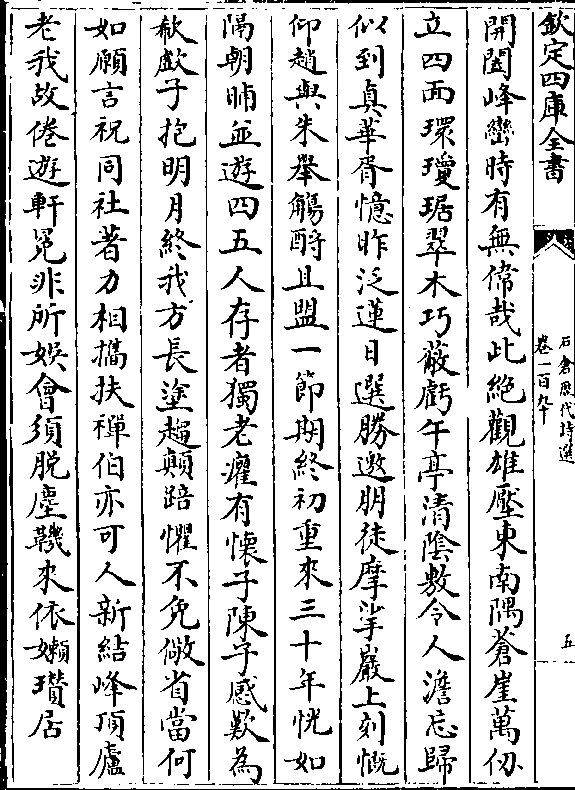 欽定四庫全書
石倉歷代詩選
卷一百九十
五
開闔峰巒時有無偉哉此絶觀雄壓東南隅蒼崖萬仭
立四面環瓊琚翠木巧蔽虧午亭清陰敷令人澹忘歸
似到真華胥憶昨泛蓮日選勝邀朋徒摩挲巖上刻慨
仰趙與朱舉觴酹且盟一節期終初重來三十年恍如
隔朝晡並遊四五人存者獨老癯有懷子陳子感歎為
欷歔子抱明月終我方長塗趨顛踣懼不免儆省當何
如願言祝同社著力相擕扶禪伯亦可人新結峰頂廬
老我故倦遊軒冕非所娛會須脱塵鞿來依嬾瓚居